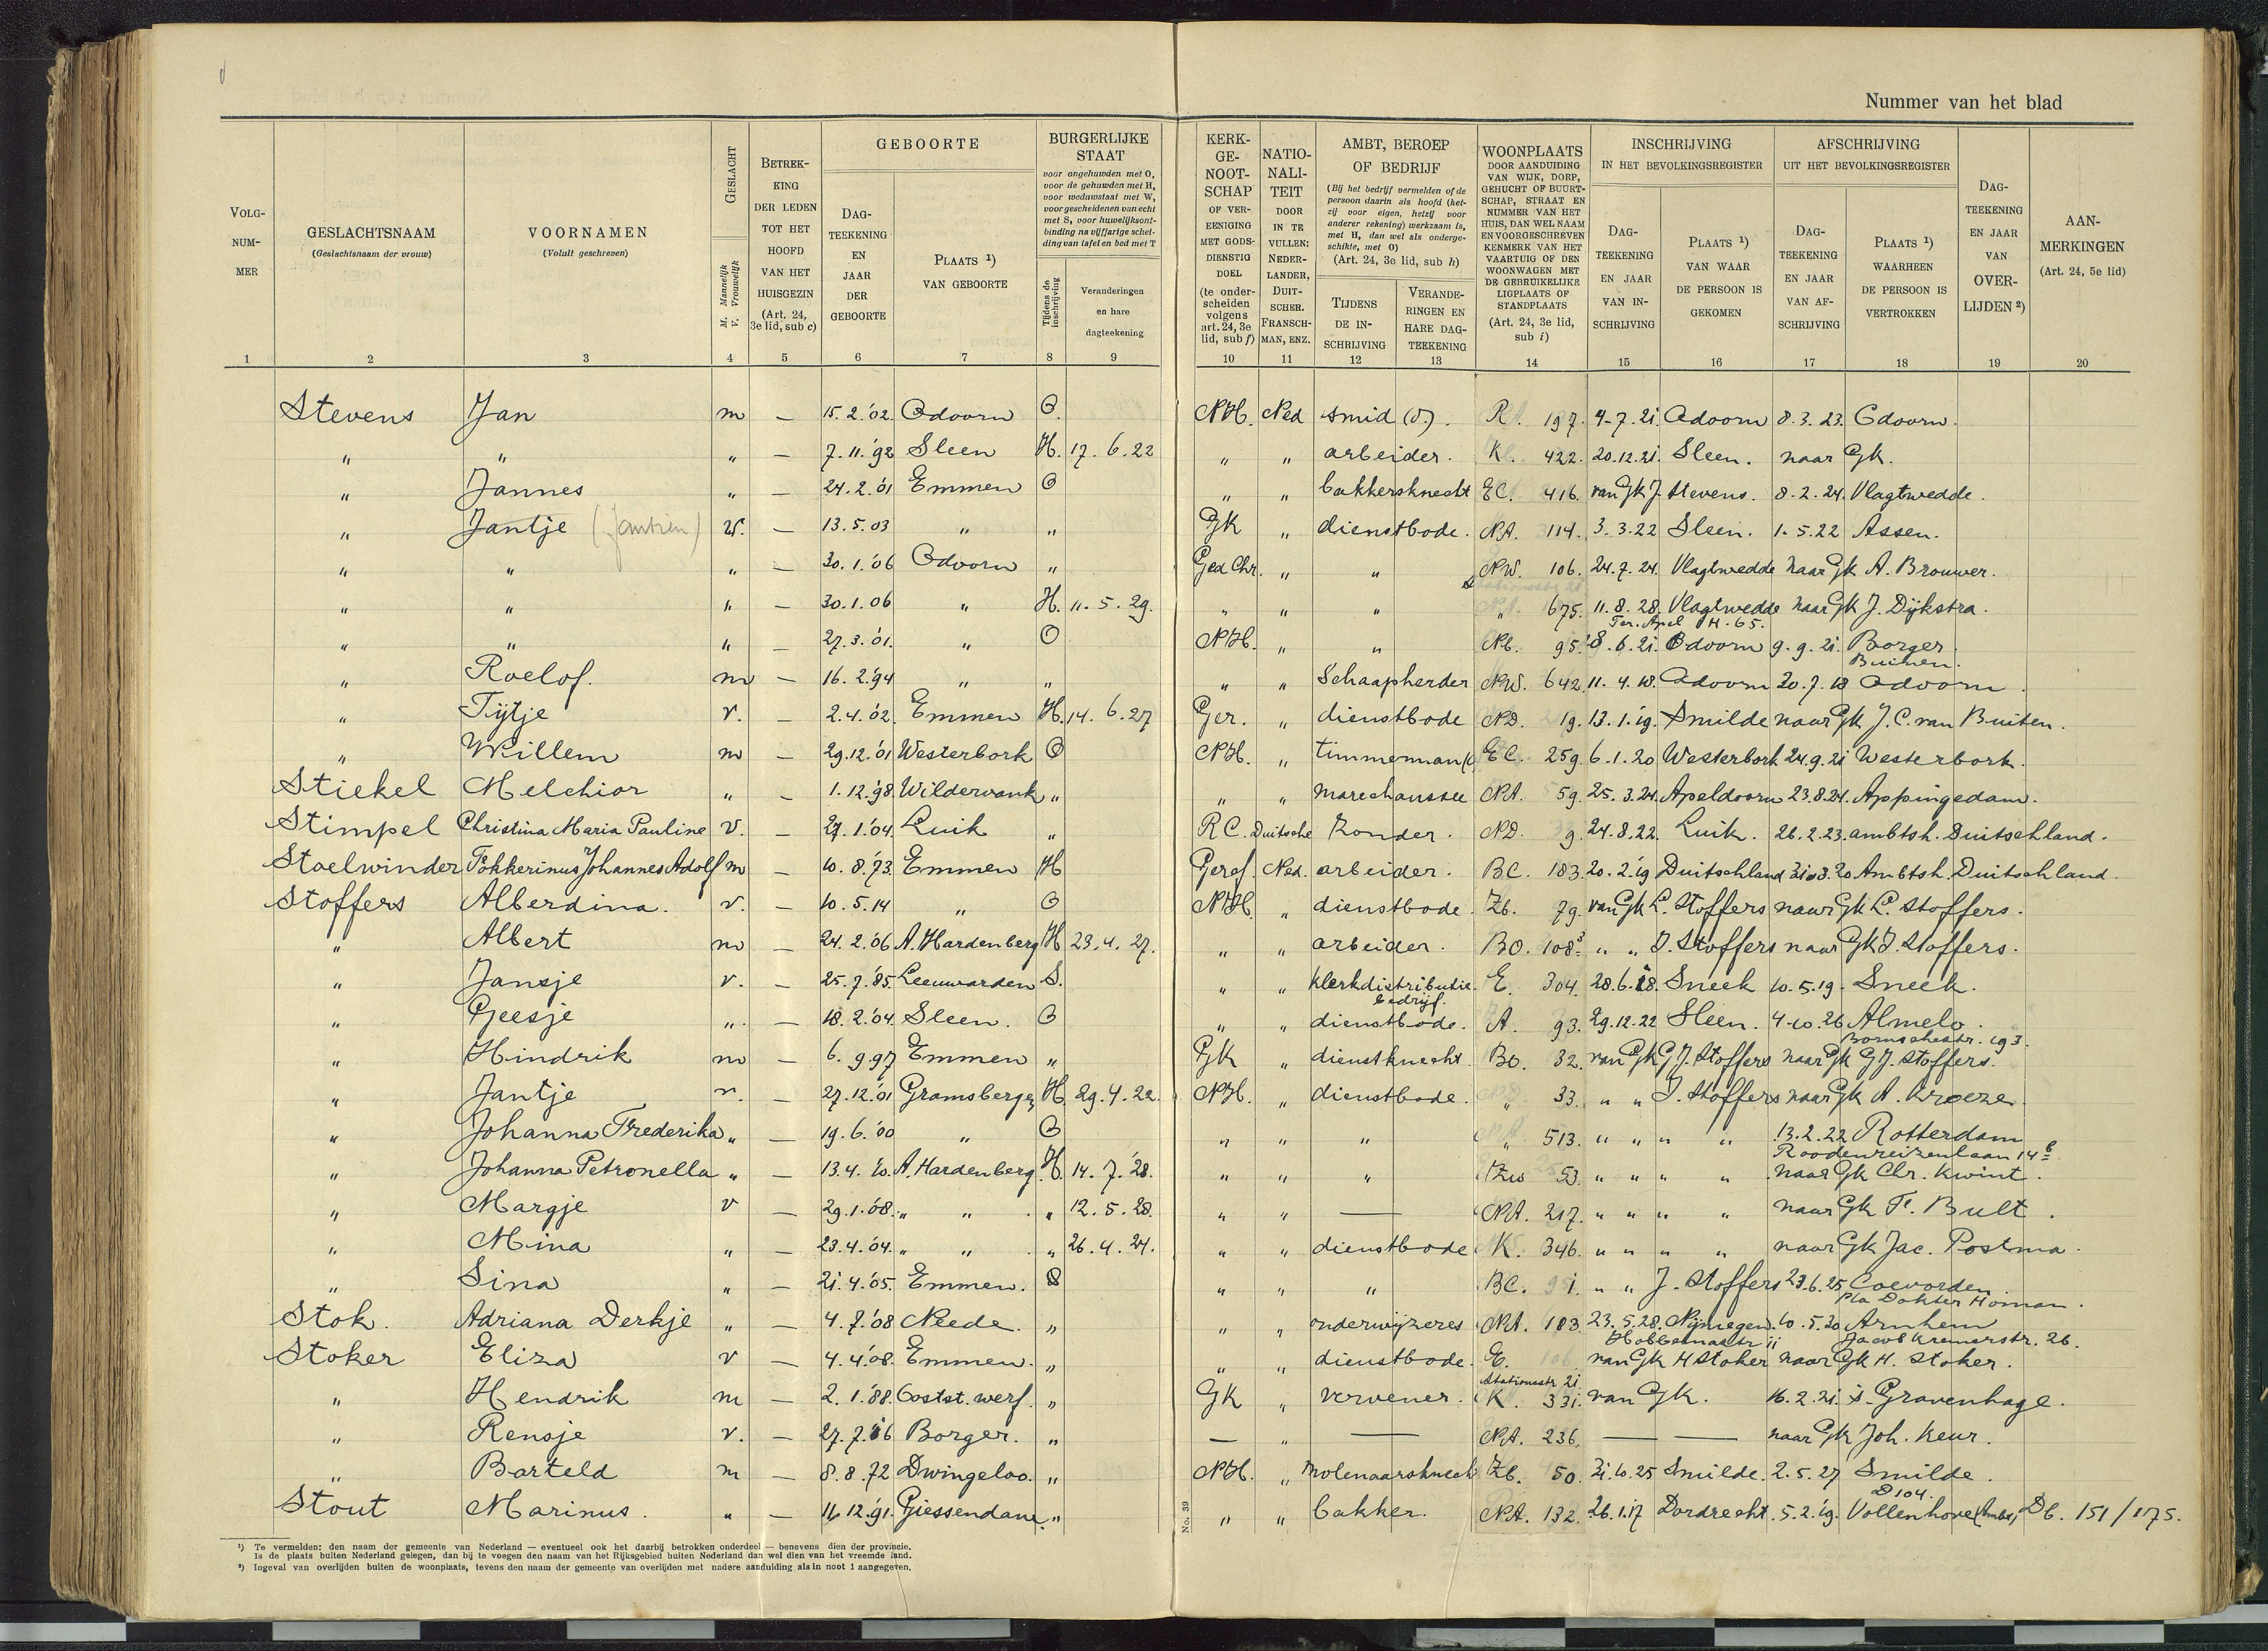 Nummer van het blad
VOLG-NUM-MER 1
GESLACHTSNAAM (Geslachtsnaam der vrouw) 2
VOORNAMEN (Voluit geschreven) 3
GESLACHT M. Mannelijk V. Vrouwelijk 4
BETREK-KING DER LEDEN TOT HET HOOFD VAN HET HUISGEZIN (Art. 24, 3e lid, sub c) 5
GEBOORTE
DAG-TEEKENING EN JAAR DER GEBOORTE 6
PLAATS ¹) VAN GEBOORTE 7
BURGERLIJKE STAAT
voor ongehuwden met O, voor de gehuwden met H, voor weduwstaat met W, voor gescheidenen van echt met S, voor huwelijksontbinding na vijfjarige scheiding van tafel en bed met T
Tijdens de inschrijving 8
Veranderingen en hare dagteekening 9
KERK-GE-NOOT-SCHAP OF VER-EENIGING MET GODS-DIENSTIG DOEL (te onder-scheiden volgens art. 24, 3e lid, sub f) 10
NATIO-NALI-TEIT DOOR IN TE VULLEN: NEDER-LANDER, DUIT-SCHER, FRANSCH-MAN, ENZ. 11
AMBT, BEROEP OF BEDRIJF
(Bij het bedrijf vermelden of de persoon daarin als hoofd (hetzij voor eigen, hetzij voor anderer rekening) werkzaam is, met H, dan wel als ondergeschikte, met O) (Art. 24, 3e lid, sub h)
TIJDENS DE IN-SCHRIJVING 12
VERANDE-RINGEN EN HARE DAG-TEEKENING 13
WOONPLAATS DOOR AANDUIDING VAN WIJK, DORP, GEHUCHT OF BUURT-SCHAP, STRAAT EN NUMMER VAN HET HUIS, DAN WEL NAAM EN VOORGESCHREVEN KENMERK VAN HET VAARTUIG OF DEN WOONWAGEN MET DE GEBRUIKELIJKE LIGPLAATS OF STANDPLAATS (Art. 24, 3e lid, sub i) 14
INSCHRIJVING IN HET BEVOLKINGSREGISTER
DAG-TEEKENING EN JAAR VAN IN-SCHRIJVING 15
PLAATS ¹) VAN WAAR DE PERSOON IS GEKOMEN 16
AFSCHRIJVING UIT HET BEVOLKINGSREGISTER
DAG-TEEKENING EN JAAR VAN AF-SCHRIJVING 17
PLAATS ¹) WAARHEEN DE PERSOON IS VERTROKKEN 18
DAG-TEEKENING EN JAAR VAN OVER-LIJDEN ²) 19
AAN-MERKINGEN (Art. 24, 5e lid) 20
Stevens Jan m — 15.2.'02. Odoorn O. NH. Ned smid (o.). R. 197. 4-7.21. Odoorn 8.3.23. Odoorn.
" " " — 7.11.'92 Sleen H. 17.6.22 " " arbeider. K. 422. 20.12.21. Sleen. naar Gk.
" Jannes " — 24.2.'01 Emmen O " " bakkersknecht EC. 416. van Gk J. Stevens. 8.2.24. Vlagtwedde.
" Jantje (Jantien) V. — 13.5.03 " " Gk " dienstbode. NA. 114. 3.3.22 Sleen. 1.5.22 Assen.
" " " — 30.1.'06 Odoorn " Ged Chr. " " NW. 106. 24.7.24. Vlagtwedde naar Gk A. Brouwer.
" " " — 30.1.06 " H. 11.5.29. " " " " 675. 11.8.28. Vlagtwedde naar Gk J. Dijkstra.
Ter. Apel H.65.
" " " — 27.3.'01. " O NH. " " Nb. 95. 28.6.21. Odoorn 9.9.21. Borger
Buinen.
" Roelof. m — 16.2.'94 " " " " Schaapherder NW. 642. 11.4.18. Odoorn 20.7.18 Odoorn.
" Tijtje v. — 2.4.'02. Emmen H. 14.6.27 Ger. " dienstbode ND. 19. 13.1.'19. Smilde naar Gk J.C. van Buiten.
" Willem m — 29.12.'01 Westerbork O NH. " timmerman EC. 259. 6.1.20 Westerbork 24.9.21 Westerbork.
Stiekel Melchior " — 1.12.'98. Wildervank " " " marechaussee NA. 59. 25.3.24. Apeldoorn 23.8.24. Appingedam.
Stimpel Christina Maria Pauline v. — 27.1.'04. Luik " RC. Duitsche Zonder. ND. 9. 24.8.22. Luik. 26.2.23. ambtsh. Duitschland.
Stoelwinder Fokkerinus Johannes Adolf m — 10.8.'73. Emmen H Geref. Ned. arbeider. BC. 183. 20.2.'19 Duitschland 31.3.20 Ambtsh. Duitschland.
Stoffers Alberdina. v. — 10.5.14 " O NH. " dienstbode. Zb. 79. van Gk L. Stoffers naar Gk L. Stoffers.
" Albert m — 24.2.'06 A. Hardenberg H 23.4.27. " " arbeider. BO. 108³. " " J. Stoffers naar Gk J. Stoffers.
" Jansje v. — 25.7.'85. Leeuwarden S. " " klerk distributie E. 304. 28.6.18. Sneek 10.5.19. Sneek.
bedrijf.
" Geesje " — 18.2.'04. Sleen. O " " dienstbode. A. 93. 29.12.22 Sleen. 4.10.26 Almelo.
Bornschestr. 193.
" Hindrik m — 6.9.97 Emmen " Gk " dienstknecht. Bo. 32. van Gk G J. Stoffers naar Gk G J. Stoffers.
" Jantje v. — 27.12.'01 Gramsbergen H. 29.4.22 NH. " dienstbode. " 33. " " J. Stoffers naar Gk A. Kroeze.
" Johanna Frederika " — 19.6.'00 " O " " " " 513. " " " " 13.2.22 Rotterdam
Roodenreizenlaan 14 b
" Johanna Petronella " — 13.4.'10. A. Hardenberg. H. 14.7.'28. " " " Zw 53. " " " " naar Gk Chr. Kwint.
" Margje v — 29.1.'08. " " " 12.5.28. " " — NA. 217. " " " " naar Gk F. Bult.
" Mina " — 23.4.'04. " " " 26.4.24. " " dienstbode K. 346. " " " " naar Gk Jac. Postma.
" Sina " — 21.4.'05. Emmen. O " " " BC. 91. " " J. Stoffers 23.6.25 Coevorden
p/a Dokter Homan.
Stok. Adriana Derkje " — 4.7.'08 Neede. " " " onderwijzeres NA. 183. 23.5.28. Nijmegen. 10.5.30 Arnhem
Hobbemastr 11 Jacob Kremerstr. 26.
Stoker Eliza v — 4.4.'08. Emmen. " " " dienstbode. E. 106. van Gk H Stoker naar Gk H. Stoker.
Stationsstr 21
" Hendrik m — 2.1.'88. Oostst. werf. " Gk " vervener. K. 331. van Gk. 16.2.21. 's Gravenhage.
" Rensje v. — 27.7.'16 Borger. " — " — NA. 236. — — naar Gk Joh. Keur.
" Barteld m — 8.8.72 Dwingeloo. " NH. " molenaarsknecht Zb. 50. 31.10.25 Smilde. 2.5.27 Smilde.
D 104.
Stout Marinus. " — 11.12.'91. Giessendam. " " " bakker. NA. 132. 26.1.17 Dordrecht. 5.2.'19. Vollenhove (Ambt) Db. 151/1175.
No. 39
¹) Te vermelden: den naam der gemeente van Nederland — eventueel ook het daarbij betrokken onderdeel — benevens dien der provincie.
Is de plaats buiten Nederland gelegen, dan bij te voegen den naam van het Rijksgebied buiten Nederland dan wel dien van het vreemde land.
²) Ingeval van overlijden buiten de woonplaats, tevens den naam der gemeente van overlijden met nadere aanduiding als in noot 1 aangegeven.